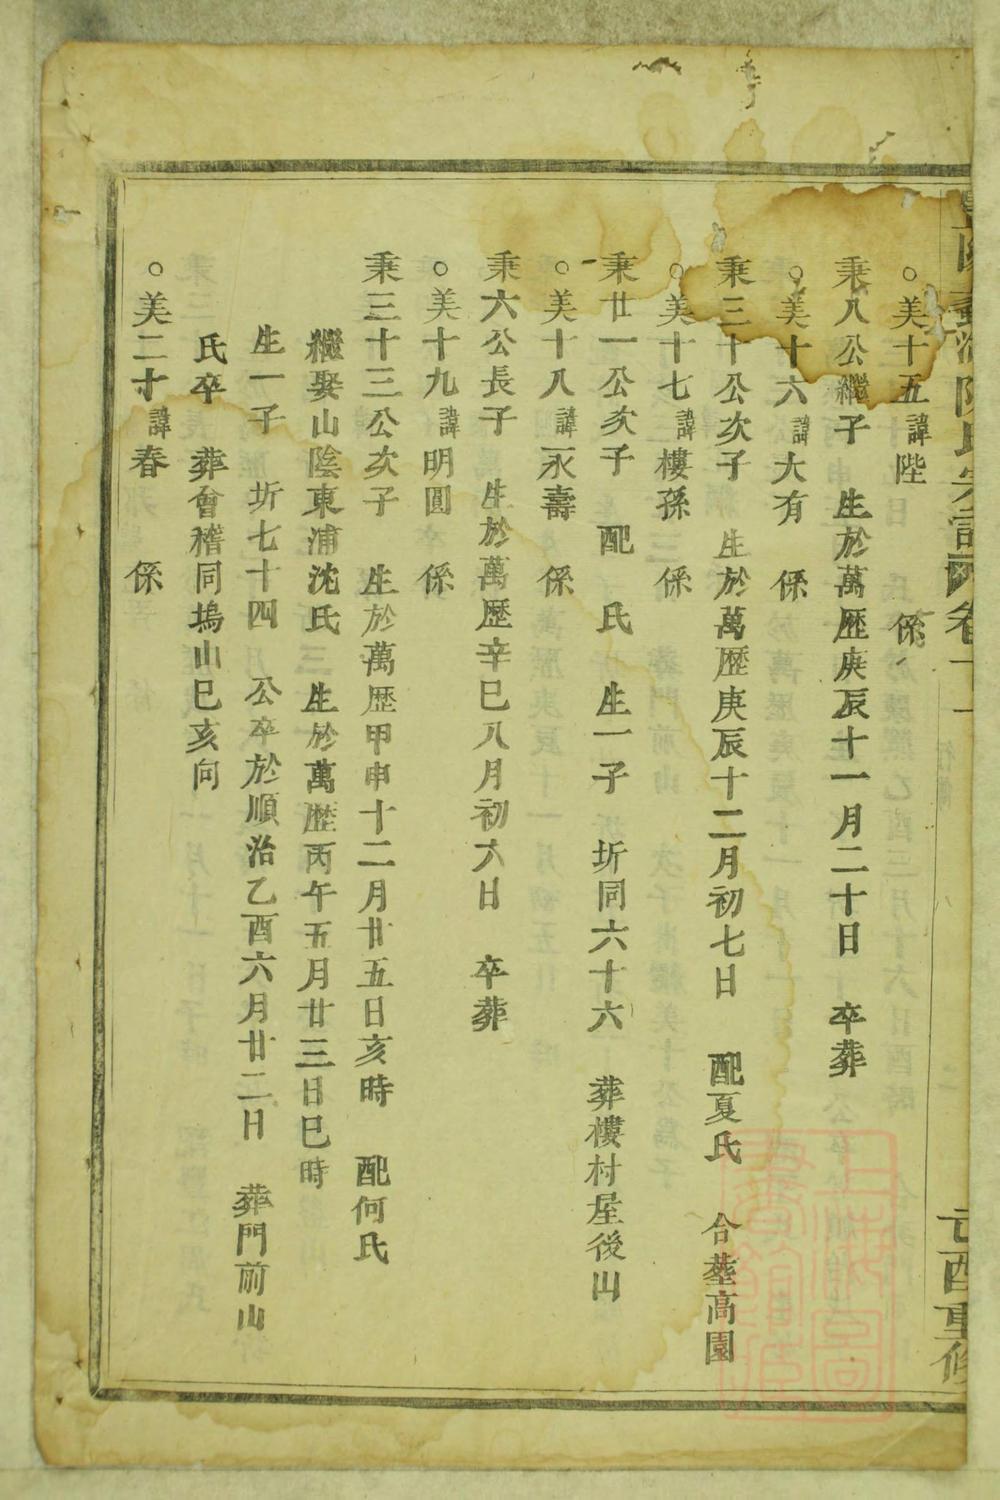 陳氏宗譜 卷十一 己酉重修
○美十五諱陛 係
秉八公繼子 生於萬歷庚辰十一月二十日 卒葬
○美十六諱大有 係
秉三十公次子 生於萬歷庚辰十二月初七日 配夏氏 合塟高園
○美十七諱樓孫 係
秉廿一公次子 配 氏 生一子 圻同六十六 葬樓村屋後山
○美十八諱永壽 係
秉六公長子 生於萬歷辛巳八月初六日 卒葬
○美十九諱明圓 係
秉三十三公次子 生於萬歷甲申十二月廿五日亥時 配何氏
繼娶山陰東浦沈氏 生於萬歷丙午五月廿三日巳時
生一子 圻七十四 公卒於順治乙酉六月廿二日 葬門前山
氏卒 葬會稽同塢山巳亥向
○美二十諱春 係